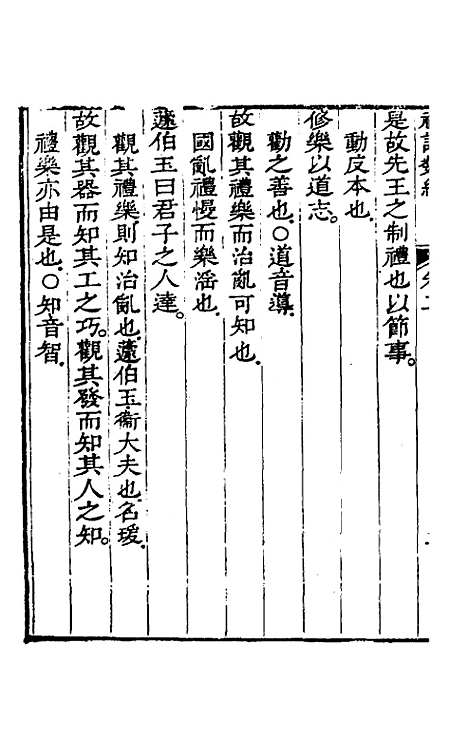 是故先王之制禮也以節事。
動反本也.
修樂以道志。
勸之善也.○道音導.
故觀其禮樂而治亂可知也.
國亂禮慢而樂淫也.
蘧伯玉曰君子之人達。
觀其禮樂則知治亂也.蘧伯玉衞大夫也名瑗.
故觀其器而知其工之巧。觀其發而知其人之知。
禮樂亦由是也.○知音智.